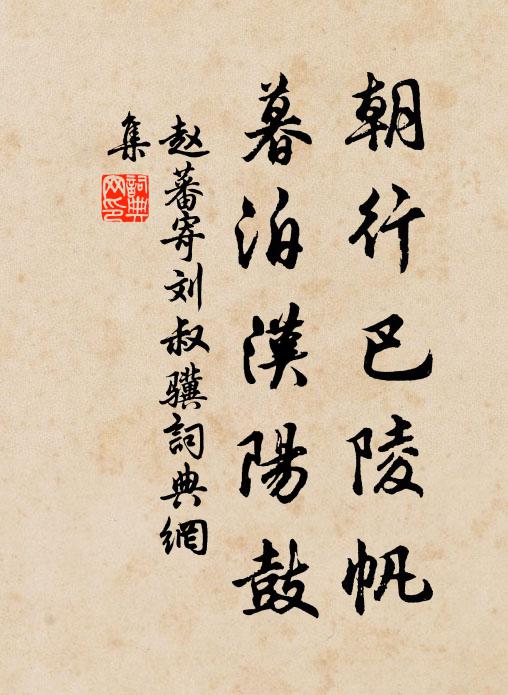 朝行巴陵帆
暮泊漢陽鼓
赵蕃寄刘叔骥詞典網
集
詞典網印